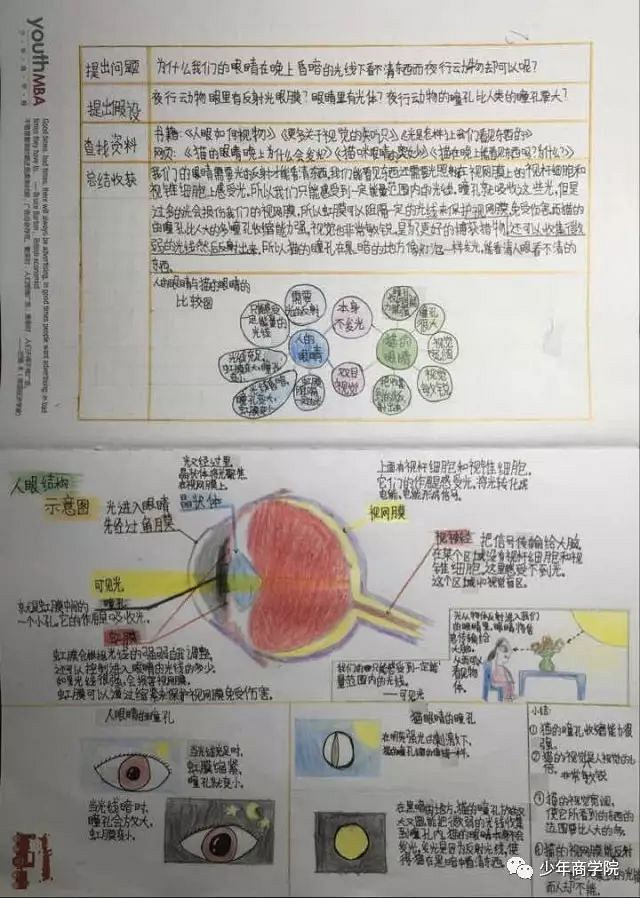 youthMBA
少年商学院
Good times, bad times, there will always be advertising. In good times people want advertising; in bad times they have to.
——Bruce Barton, British economist
提出问题
为什么我们的眼睛在晚上昏暗的光线下看不清东西而夜行动物却可以呢?
提出假设
夜行动物眼里有反射光眼膜?眼睛里有光体?夜行动物的瞳孔比人类的瞳孔要大?
查找资料
书籍:《人眼如何视物》《更多关于视觉的知识》《光是怎样让我们看见东西的》
网页:《猫的眼睛晚上为什么会发光》《猫咪眼睛的奥妙》《猫在晚上能看见东西吗?为什么?》
总结收获
我们的眼睛需要光的反射才能看清东西,我们能看见东西还需要光照射在视网膜上的视杆细胞和
视锥细胞上感受光。所以我们只能感受到一定能量范围内的光线。瞳孔就吸收这些光,但是
过多的光会损伤我们的视网膜,所以虹膜可以阻隔一定的光线来保护视网膜免受伤害。而猫的
的瞳孔比人大的多瞳孔收缩能力强,视觉也非常敏锐,是为了更好的捕获猎物,还可以收集微
弱的光线然后反射出来。所以猫的瞳孔在黑暗的地方像灯泡一样发光,能看清人眼看不清的
东西。
人的眼睛与猫的眼睛的
比较图
需要光的反射
只能感受一定能量的光线
人的眼睛
本身不发光
双目视觉
猫的眼睛
瞳孔很大
视觉宽阔
视觉敏锐
人眼结构
示意图
光又经过里
晶状体将光聚焦
在视网膜上。
晶状体
光进入眼睛
先经过角膜
上面有视杆细胞和视锥细胞,
它们的作用是感受光,将光转化成
电能,也能形成信号。
视网膜
视神经
把信号传输给大脑,
在某个区域没有视杆细胞和视
锥细胞,这里感受不到光,
这个区域叫视盲区。
可见光
瞳孔
就是虹膜中间的
一个小孔,它的作用是吸收光。
虹膜
虹膜会根据光线的强弱自我调整,
还可以控制进入眼睛的光线的多少。
如果光线很强,会损害视网膜,
虹膜可以通过缩紧来保护视网膜免受伤害。
光从物体反射进入我们
的眼睛里,
我们的眼只能感受到一定能
量范围内的光线。
——可见光
人眼睛的瞳孔
当光线充足时,
虹膜缩紧,
瞳孔就变小。
当光线暗时,
瞳孔会放大,
虹膜变小。
猫眼睛的瞳孔
在明亮强光的刺激下,
在黑暗的地方,猫的瞳孔放的
又大又圆,能把微弱的光线收集
到瞳孔内,猫的眼睛本身不会
发光,发光是因为反射光线,使
得猫在黑暗中看清东西。
小结:
① 猫的瞳孔收缩能力很
强。
② 猫的视觉是人视觉的6
倍,非常敏锐
③ 猫的视觉宽阔,
使它所看到的东西的
范围要比人大的多。
④ 猫的视网膜能反射
而人却不能。
少年商学院